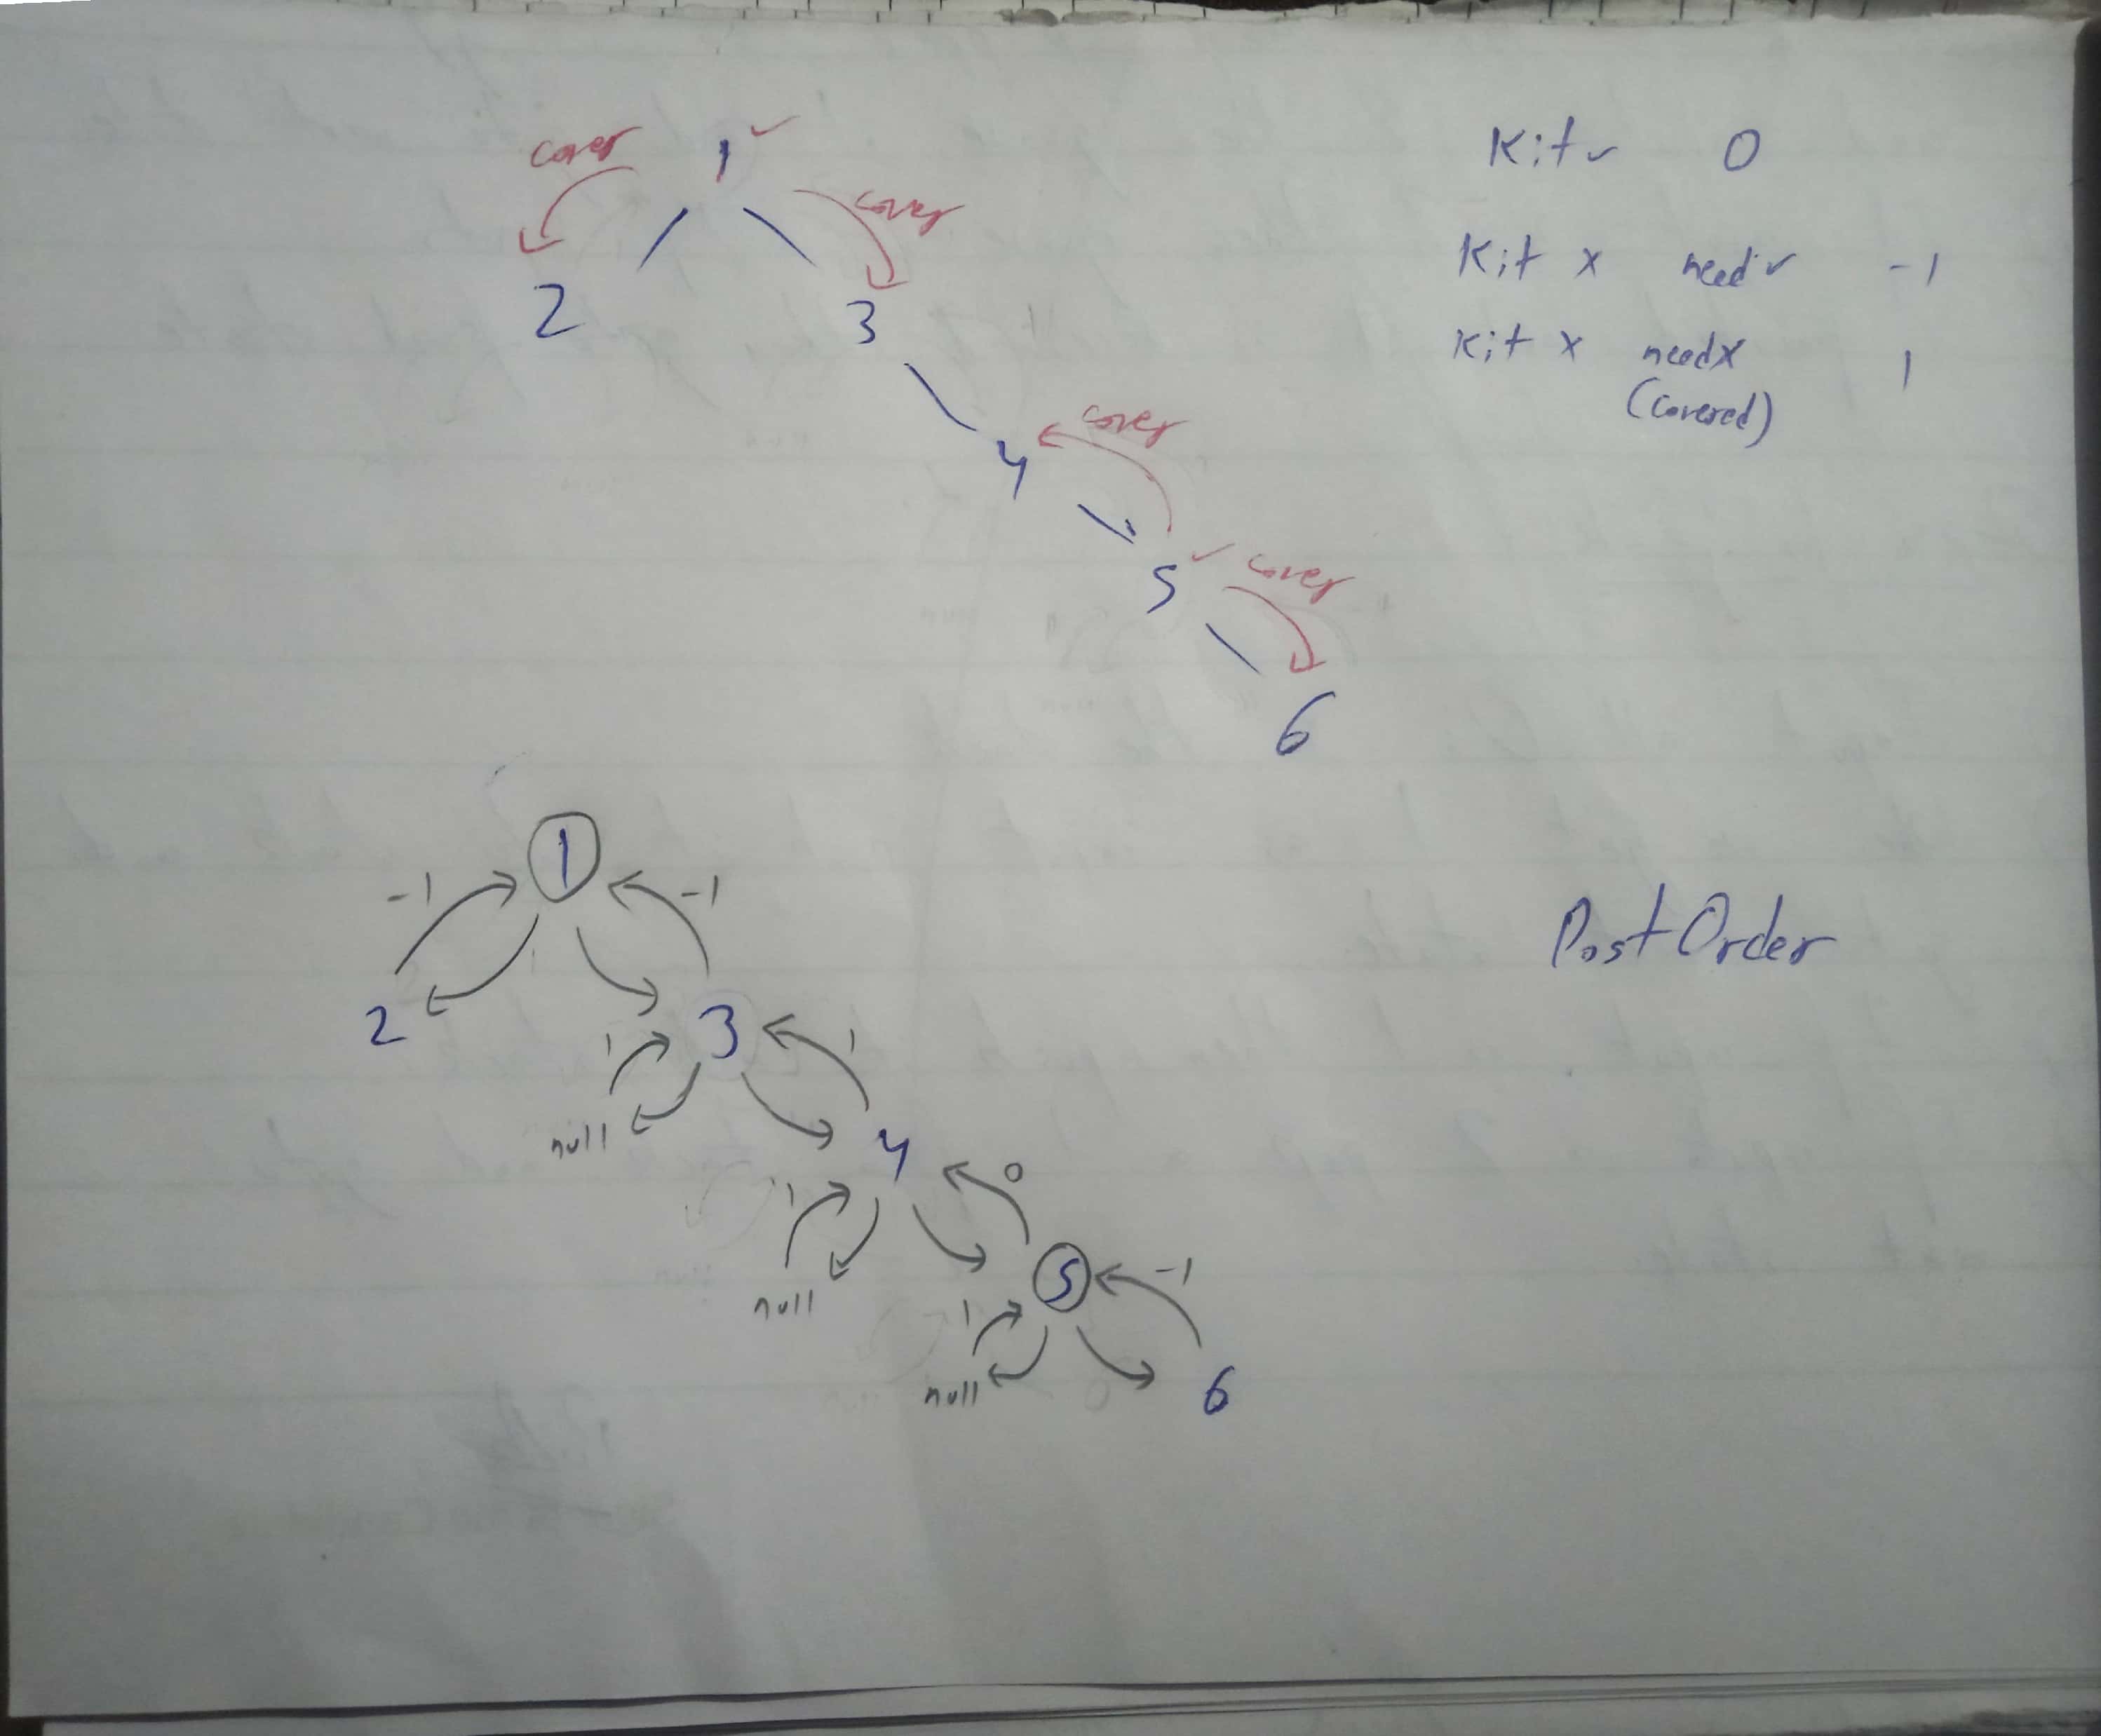 cover 1 ✓ cover
2 3
cover
4
✓ cover
5
6
Kit ✓ 0
Kit x need ✓ -1
Kit x needx 1
(covered)
-1 1 -1
2 3
1 1
null 4
1 0
null 5 -1
1
null 6
PostOrder